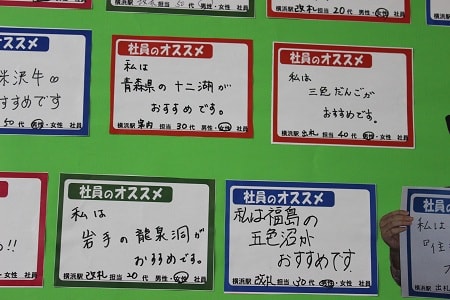 横浜駅 改札 担当 20代 男性・女性 社員
米沢牛
おすすめです
50代 男性・女性 社員
社員のオススメ
私は
青森県の十二湖が
おすすめです。
横浜駅 案内 担当 30代 男性・女性 社員
社員のオススメ
私は
三色だんごが
おすすめです。
横浜駅 出札 担当 40代 男性・女性 社員
!!
・女性 社員
社員のオススメ
私は
岩手の龍泉洞が
おすすめです。
横浜駅 改札 担当 20代 男性・女性 社員
社員のオススメ
私は福島の
五色沼が
おすすめです
横浜駅 改札 担当 30代 男性・女性 社員
私は
横浜駅 出札